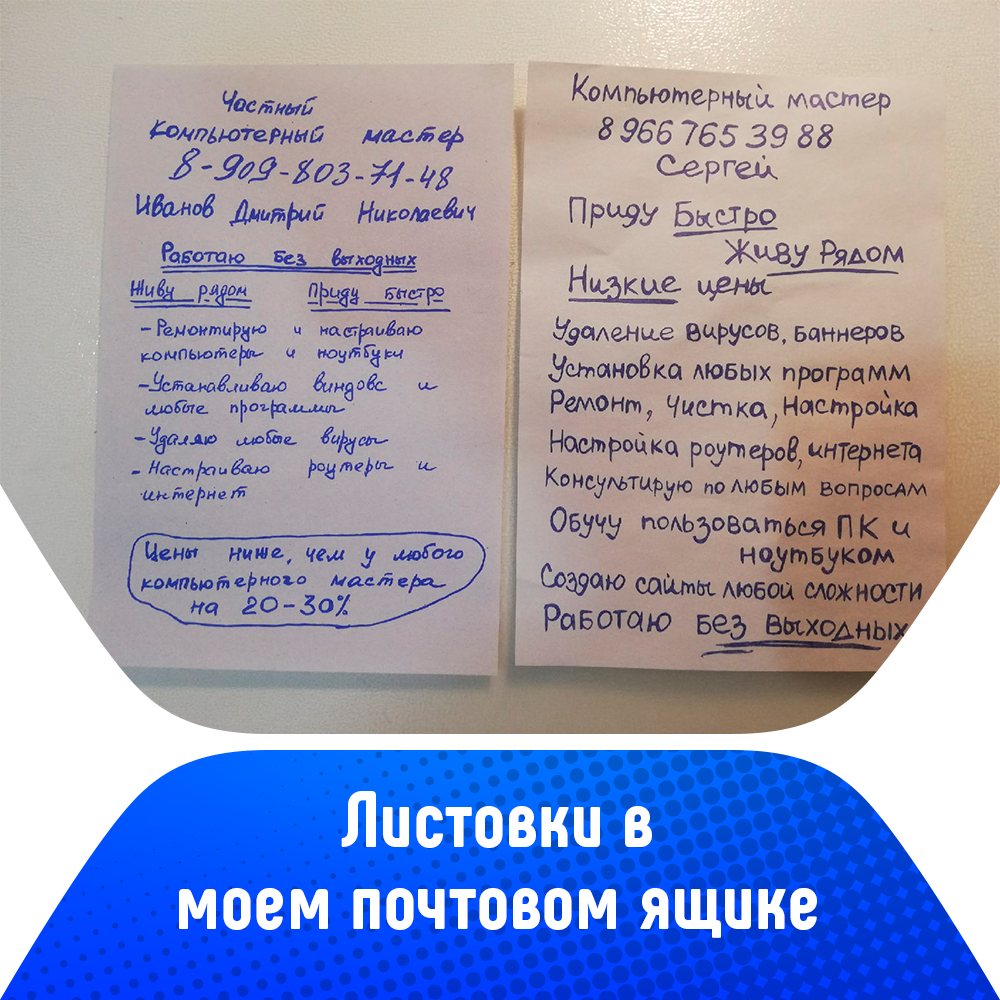 Частный
Компьютерный мастер
8-909-803-71-48
Иванов Дмитрий Николаевич
Работаю без выходных
Живу рядом Приду быстро
-Ремонтирую и настраиваю
компьютеры и ноутбуки
-Устанавливаю виндовс и
любые программы
-Удаляю любые вирусы
-Настраиваю роутеры и
интернет
Цены ниже, чем у любого
компьютерного мастера
на 20-30%
Компьютерный мастер
8 966 765 39 88
Сергей
Приду Быстро
Живу Рядом
Низкие цены
Удаление вирусов, баннеров
Установка любых программ
Ремонт, Чистка, Настройка
Настройка роутеров, интернета
Консультирую по любым вопросам
Обучу пользоваться ПК и
ноутбуком
Создаю сайты любой сложности
Работаю без выходных
Листовки в
моем почтовом ящике